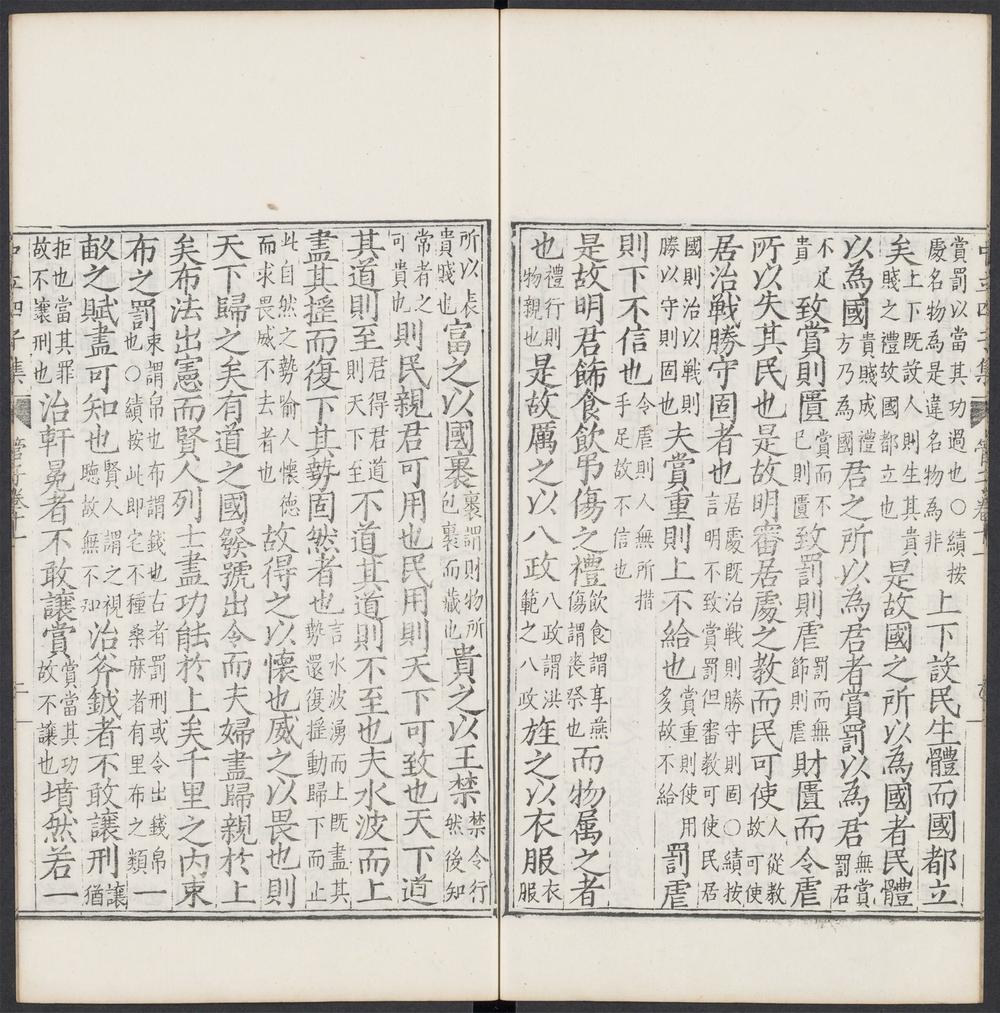 中立四子集 管子卷十一
賞罰以當其功過也○績按慶名物為是違名物為非上下設民生體而國都立
矣上下既設人則生其貴賤之禮故國都立也是故國之所以為國者民體
以為國貴賤成禮方乃為國君之所以為君者賞罰以為君無賞罰君
不足貴致賞則匱賞而不已則匱致罰則虐罰而無節則虐財匱而令虐
所以失其民也是故明審居處之教而民可使人從教故可使
居治戰勝守固者也居處既治戰則勝守則固○績按言明不致賞罰但審教可使民居
國則治以戰則勝以守則固也夫賞重則上不給也賞重則使用多故不給罰虐
則下不信也令虐則人無所措手足故不信也
是故明君飾食飲弔傷之禮飲食謂享燕傷謂喪祭也而物属之者
也禮行則物親也是故厲之以八政八政謂洪範之八政旌之以衣服衣服
所以表貴賤也富之以國裹裹謂財物所包裹而藏也貴之以王禁禁令行然後知
常者之可貴也則民親君可用也民用則天下可致也天下道
其道則至君得君道則天下至不道其道則不至也夫水波而上
盡其揺而復下其勢固然者也言水波湧而上既盡其勢還復揺動歸下而止
此自然之勢喻人懷德而求畏威不去者也故得之以懷也威之以畏也則
天下歸之矣有道之國發號出令而夫婦盡歸親於上
矣布法出憲而賢人列士盡功能於上矣千里之内束
布之罰束謂帛也布謂錢也古者罰刑或令出錢帛也○績按此即宅不種桑麻者有里布之類一
畝之賦盡可知也賢人謂之視聴故無不知治斧鉞者不敢讓刑讓猶
拒也當其罪故不讓刑也治軒冕者不敢讓賞賞當其功故不讓也墳然若一
中立四子集 管子卷十一